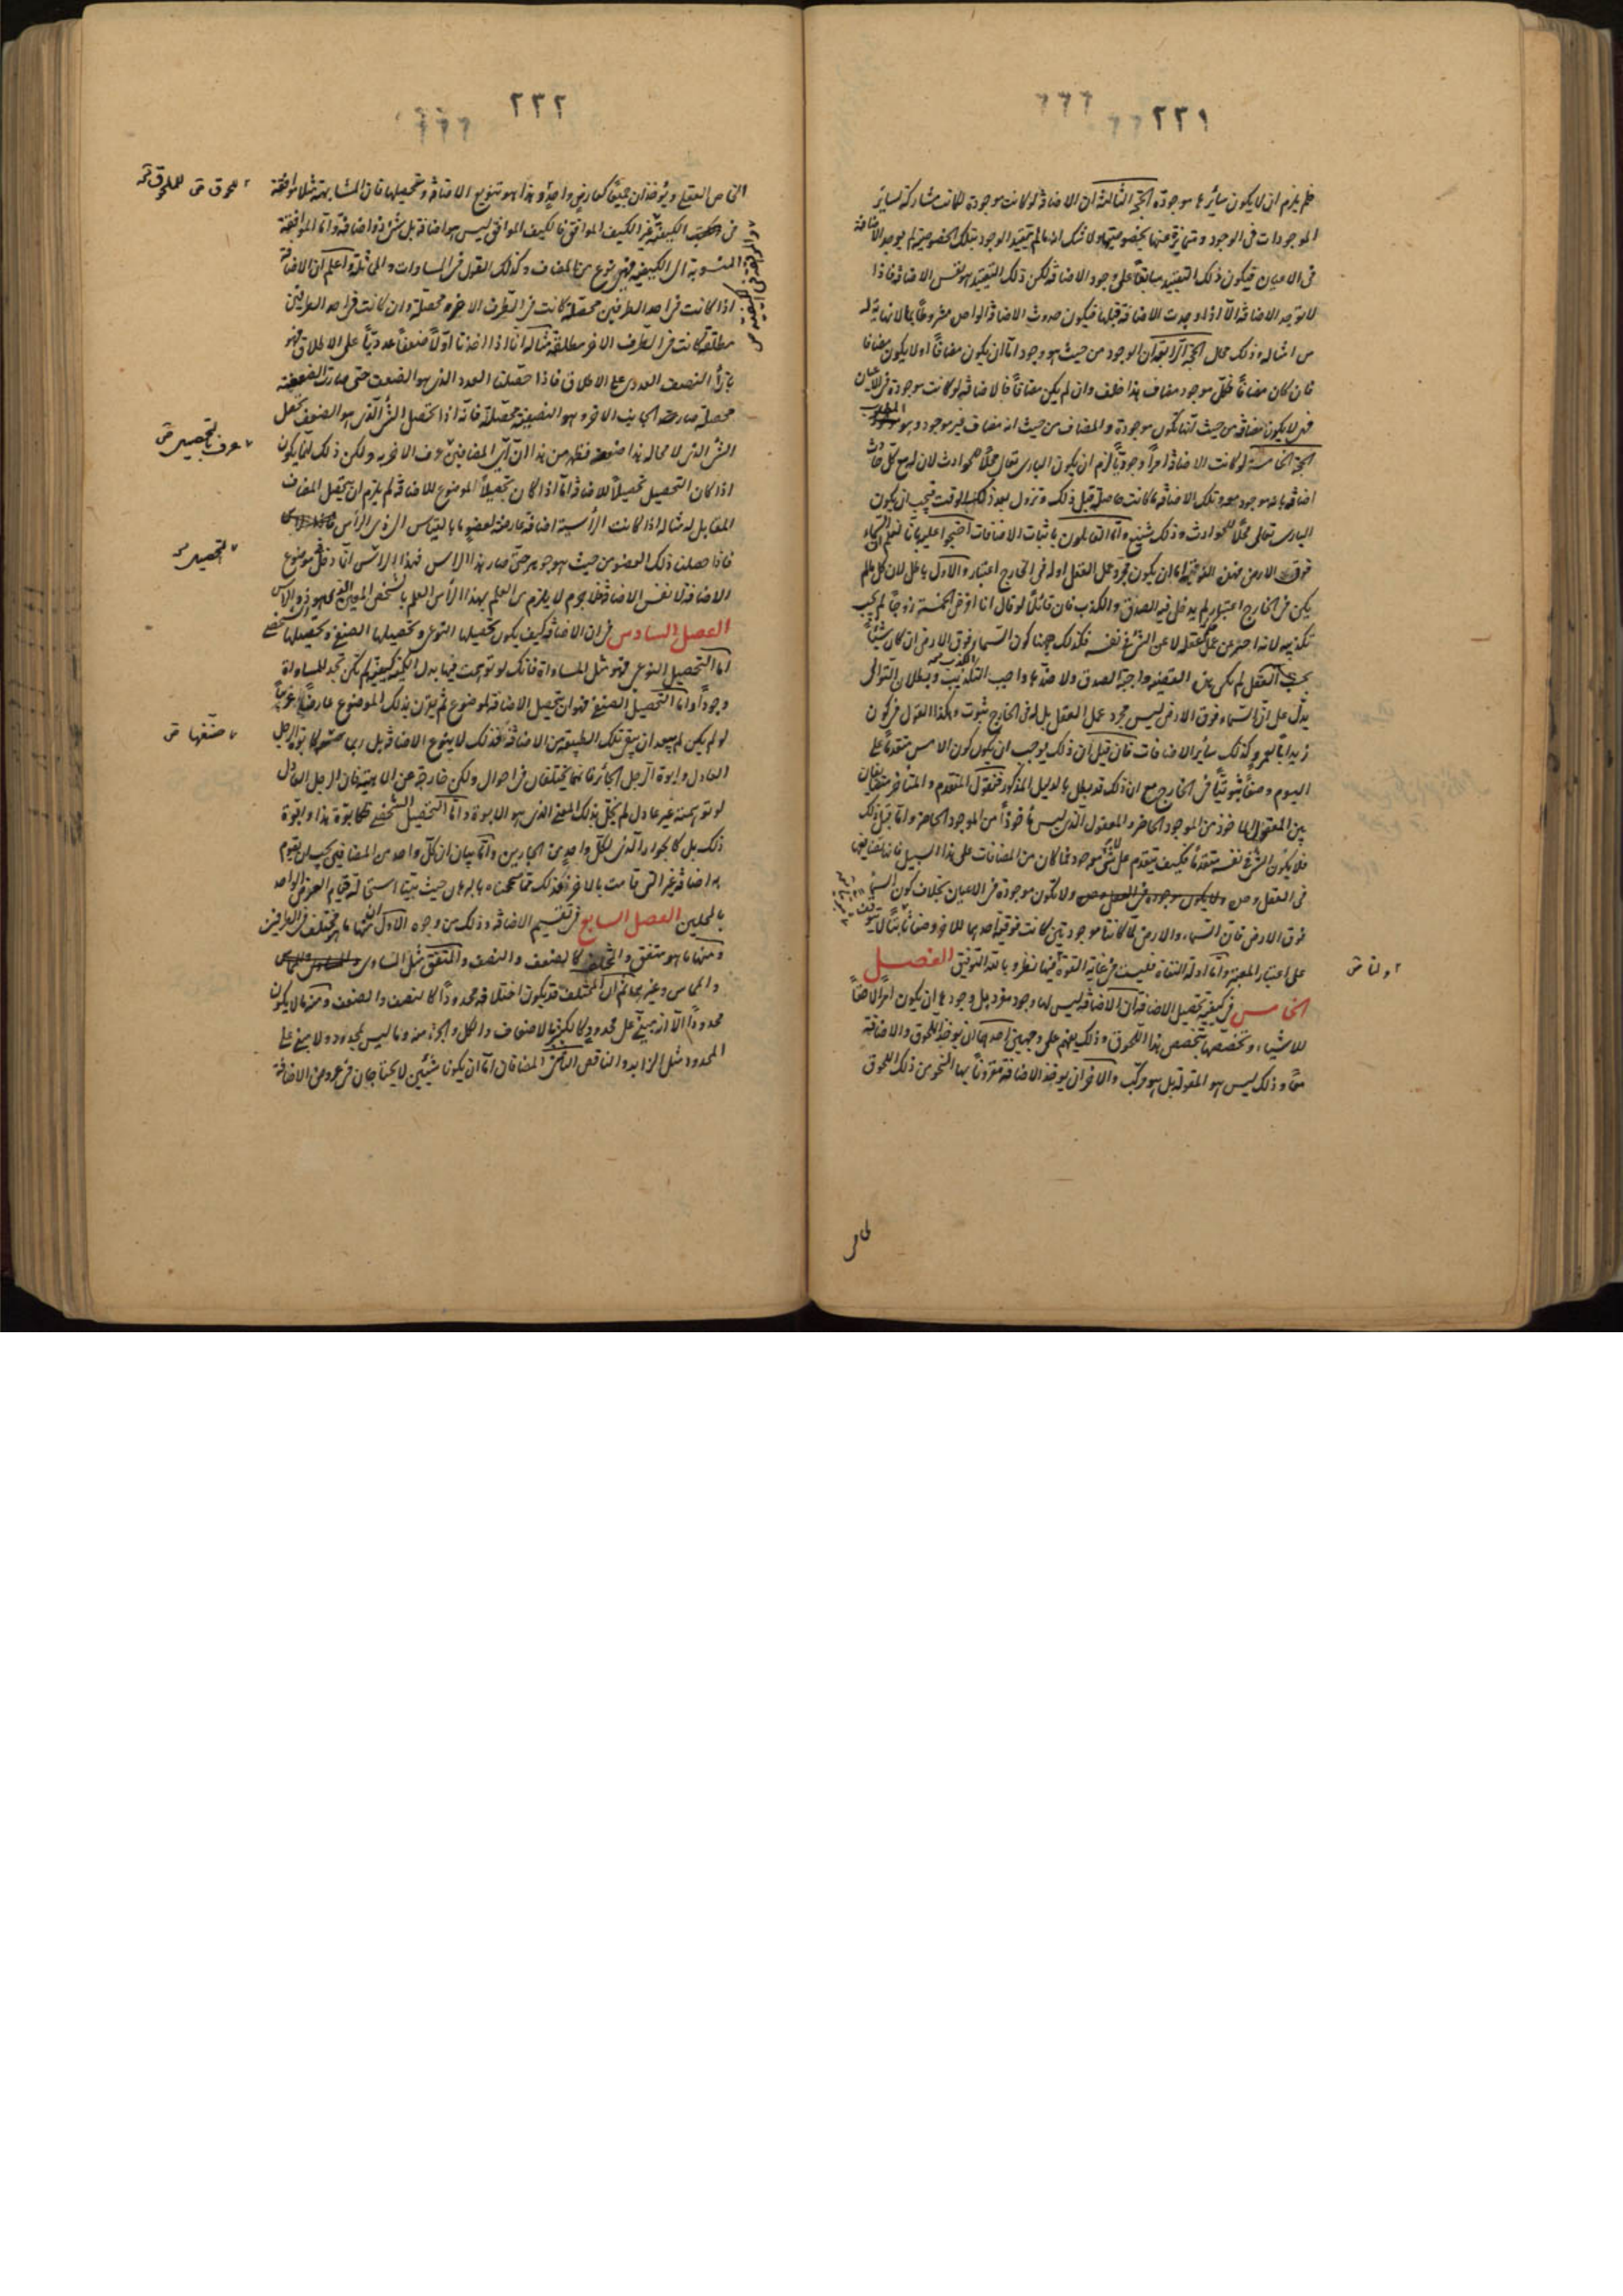 ٢٢١
فلم يلزم ان لا يكون سائرها موجودة الحجة الثالثة ان الاضافة لو كانت موجودة لكانت مشاركة لسائر
الموجودات فى الوجود و متميزة عنها بخصوصيتها ولا شك انه ما لم يتقيد الوجود بتلك الخصوصية لم يوجد الاضافة
فى الاعيان فيكون ذلك التقييد سابقاً على وجود الاضافة لكن ذلك التقييد هو نفس الاضافة فاذا
لا توجد الاضافة الا اذا وجدت الاضافة قبلها فيكون حدوث الاضافة الواحدة مشروطاً بما لا نهاية له
من امثاله وذلك محال الحجة الرابعة ان الوجود من حيث هو وجود اما ان يكون مضافاً او لا يكون مضافا
فان كان مضافاً فكل موجود مضاف هذا خلف وان لم يكن مضافاً فالاضافة لو كانت موجودة فى الاعيان
فهى لا يكون مضافة من حيث انها تكون موجودة و المضاف من حيث انه مضاف غير موجود وهو المطلوب
الحجة الخامسة لو كانت الاضافة امراً وجودياً لزم ان يكون البارى تعالى محلاً للحوادث لان له مع كل حادث
اضافة بانه موجود معه و تلك الاضافة ما كانت حاصلة قبل ذلك و تزول بعد ذلك الوقت فيجب ان يكون
البارى تعالى محلاً للحوادث و ذلك شنيع و اما القائلون باثبات الاضافات احتجوا عليه بانا نعلم ان السماء
فوق الارض فهذه الفوقية اما ان يكون مجرد عمل العقل او له فى الخارج اعتبار و الاول باطل لان كل ما لم
يكن فى الخارج اعتبار لم يدخل فيه الصدق و الكذب فان قائلاً لو قال انا افرض الخمسة زوجاً لم يجب
تكذيبه لانه اخبر عن عمل عقله لا عن الشئ فى نفسه فكذلك ههنا كون السماء فوق الارض ان كان شيئاً
بحسب العقل لم يكن هذه القضية واجبة الصدق ولا ضدها واجب التكذيب وبطلان التوالى
يدل على ان السماء فوق الارض ليس مجرد عمل العقل بل له فى الخارج ثبوت و هكذا القول فى كون
زيد اباً لعمرو كذلك سائر الاضافات فان قيل ان ذلك يوجب ان يكون كون الامس متقدماً على
اليوم وصفاً ثبوتياً فى الخارج مع ان ذلك قد بطل بالدليل المذكور فنقول المتقدم و المتأخر متضايفان
بين المعقول المأخوذ من الموجود الحاضر و المعقول الذى ليس مأخوذاً من الموجود الحاضر و اما قبل ذلك
فلا يكون الشئ فى نفسه متقدماً فكيف يتقدم على لا شئ موجود فما كان من المضافات على هذا السبيل فانما تضايفها
فى العقل وحده ولا يكون موجودة فى الاعيان بخلاف كون السماء
فوق الارض فان السماء و الارض لما كانتا موجودتين كانت فوقية احدهما للاخر وصفاً ثابتاً لا يتوقف
على اعتبار المعتبر و اما ادلة النفاة فليست فى غاية القوة ففيها نظر و بالله التوفيق الفصل
الخامس فى كيفية تحصيل الاضافة ان الاضافة ليس لها وجود مفرد بل وجودها ان يكون امراً لاحقاً
للاشياء و تخصصها بتخصص هذا اللحوق و ذلك يفهم على وجهين احدهما ان يوخذ الملحوق و الاضافة
معاً و ذلك ليس هو المقولة بل هو مركب و الاخر ان يوخذ الاضافة مقروناً بها النحو من ذلك اللحوق
٢ ولنا ض
٢٢٢
الخاص العقلى و يوخذان جميعاً كعارض واحد و هذا هو تنويع الاضافة و تحصيلها فان المشابهة مثلا موافقة
فى الكيفية غير الكيف الموافق فالكيف الموافق ليس هو اضافة بل شئ ذو اضافة و اما الموافقة
المنسوبة الى الكيفية فهى نوع من المضاف و كذلك القول فى المساوات و المماثلة و اعلم ان الاضافة
اذا كانت فى احد الطرفين محصلة كانت فى الطرف الاخر محصلة و ان كانت فى احد الطرفين
مطلقة كانت فى الطرف الاخر مطلقة مثاله انا اذا اخذنا اولاً ضعفاً عددياً على الاطلاق فهو
بازاء النصف العددى على الاطلاق فاذا حصلنا العدد الذى هو الضعف حتى صارت الضعفية
محصلة صار الجانب الاخر و هو النصفية محصلة فانه اذا تحصل الشئ الذى هو الضعف تحصل
الشئ الذى لا محالة هذا ضعفه فظهر من هذا ان اى المضافين عرف الاخر به ولكن ذلك انما يكون
اذا كان التحصيل تحصيلاً للاضافة اما اذا كان تحصيلاً لموضوع للاضافة لم يلزم ان يتحصل المضاف
المقابل له مثاله اذا كانت الرأسية اضافة عارضة لعضو ما بالقياس الى ذى الرأس
فاذا حصلنا ذلك العضو من حيث هو جوهر حتى صار هذا الراس فهذا الراس انما دخل موضوع
الاضافة لا نفس الاضافة فلا جرم لا يلزم من العلم بهذا الرأس العلم بالشخص المعين الذى هو ذو الرأس
الفصل السادس فى ان الاضافة كيف يكون تحصيلها النوعى و تحصيلها الصنفى و تحصيلها الشخصى
اما التحصيل النوعى فهو مثل المساواة فانك لو توهمت فيها بدل الكمية كيفية لم تكن تجد للمساواة
وجوداً و اما التحصيل الصنفى فهو ان يتحصل الاضافة لموضوع ثم يقرن بذلك الموضوع عارضاً غريباً
لو لم يكن لم يبعد ان تبقى تلك الطبيعة من الاضافة فذلك لا ينوع الاضافة بل ربما كابوة الرجل
العادل و ابوة الرجل الجائر فانهما يختلفان فى احوال ولكن خارجة عن الماهية فان الرجل العادل
لو توهمته غير عادل لم يخل بذلك المعنى الذى هو الابوة و اما التحصيل الشخصى فكابوة هذا و ابوة
ذلك بل كالجوار الذى لكل واحد من الجارين و اما بيان ان كل واحد من المضافين يجب ان يقوم
به اضافة غير التى قامت بالاخر فذلك مما صححناه بالبرهان حيث بينا استحالة قيام العرض الواحد
بالمحلين الفصل السابع فى تقسيم الاضافة و ذلك من وجوه الاول انه منها ما هو مختلف فى الطرفين
و منها ما هو متفق و المختلف كالضعف و النصف و المتفق مثل المساوى
و المماس و غيرهما ثم ان المختلف قد يكون اختلافه محدوداً كالنصف و الضعف و منه ما لا يكون
محدوداً الا انه مبنى على محدود كالكثير الاضعاف و الكل و الجزء منه و ما ليس بمحدود ولا مبنى على
المحدود مثل الزايد و الناقص الثانى المضافان اما ان يكونا شيئين لا يحتاجان فى عروض الاضافة